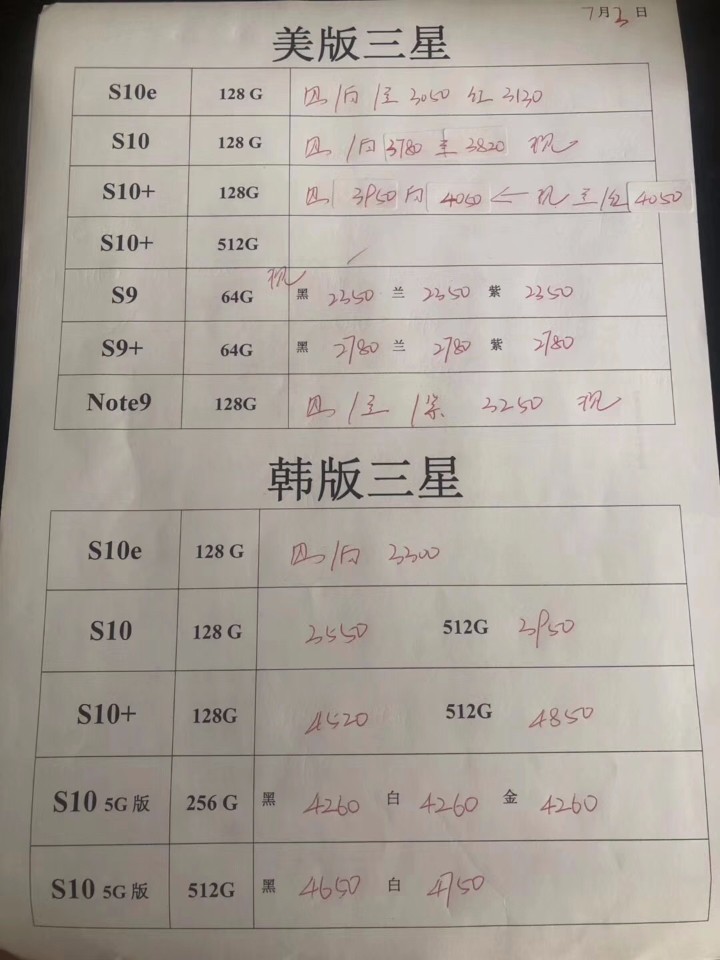 7月3日
美版三星
S10e 128 G /白/兰 3050 红 3130
S10 128 G /白 3780 兰 3820 现
S10+ 128G 3950 白 4050 ← 现 兰/红 4050
S10+ 512G
S9 64G 现 黑 2350 兰 2350 紫 2350
S9+ 64G 黑 2780 兰 2780 紫 2780
Note9 128G /兰/紫 3250 现
韩版三星
S10e 128 G /白 3300
S10 128 G 3550 512G 3950
S10+ 128G 4520 512G 4850
S10 5G 版 256 G 黑 4260 白 4260 金 4260
S10 5G 版 512G 黑 4650 白 4750